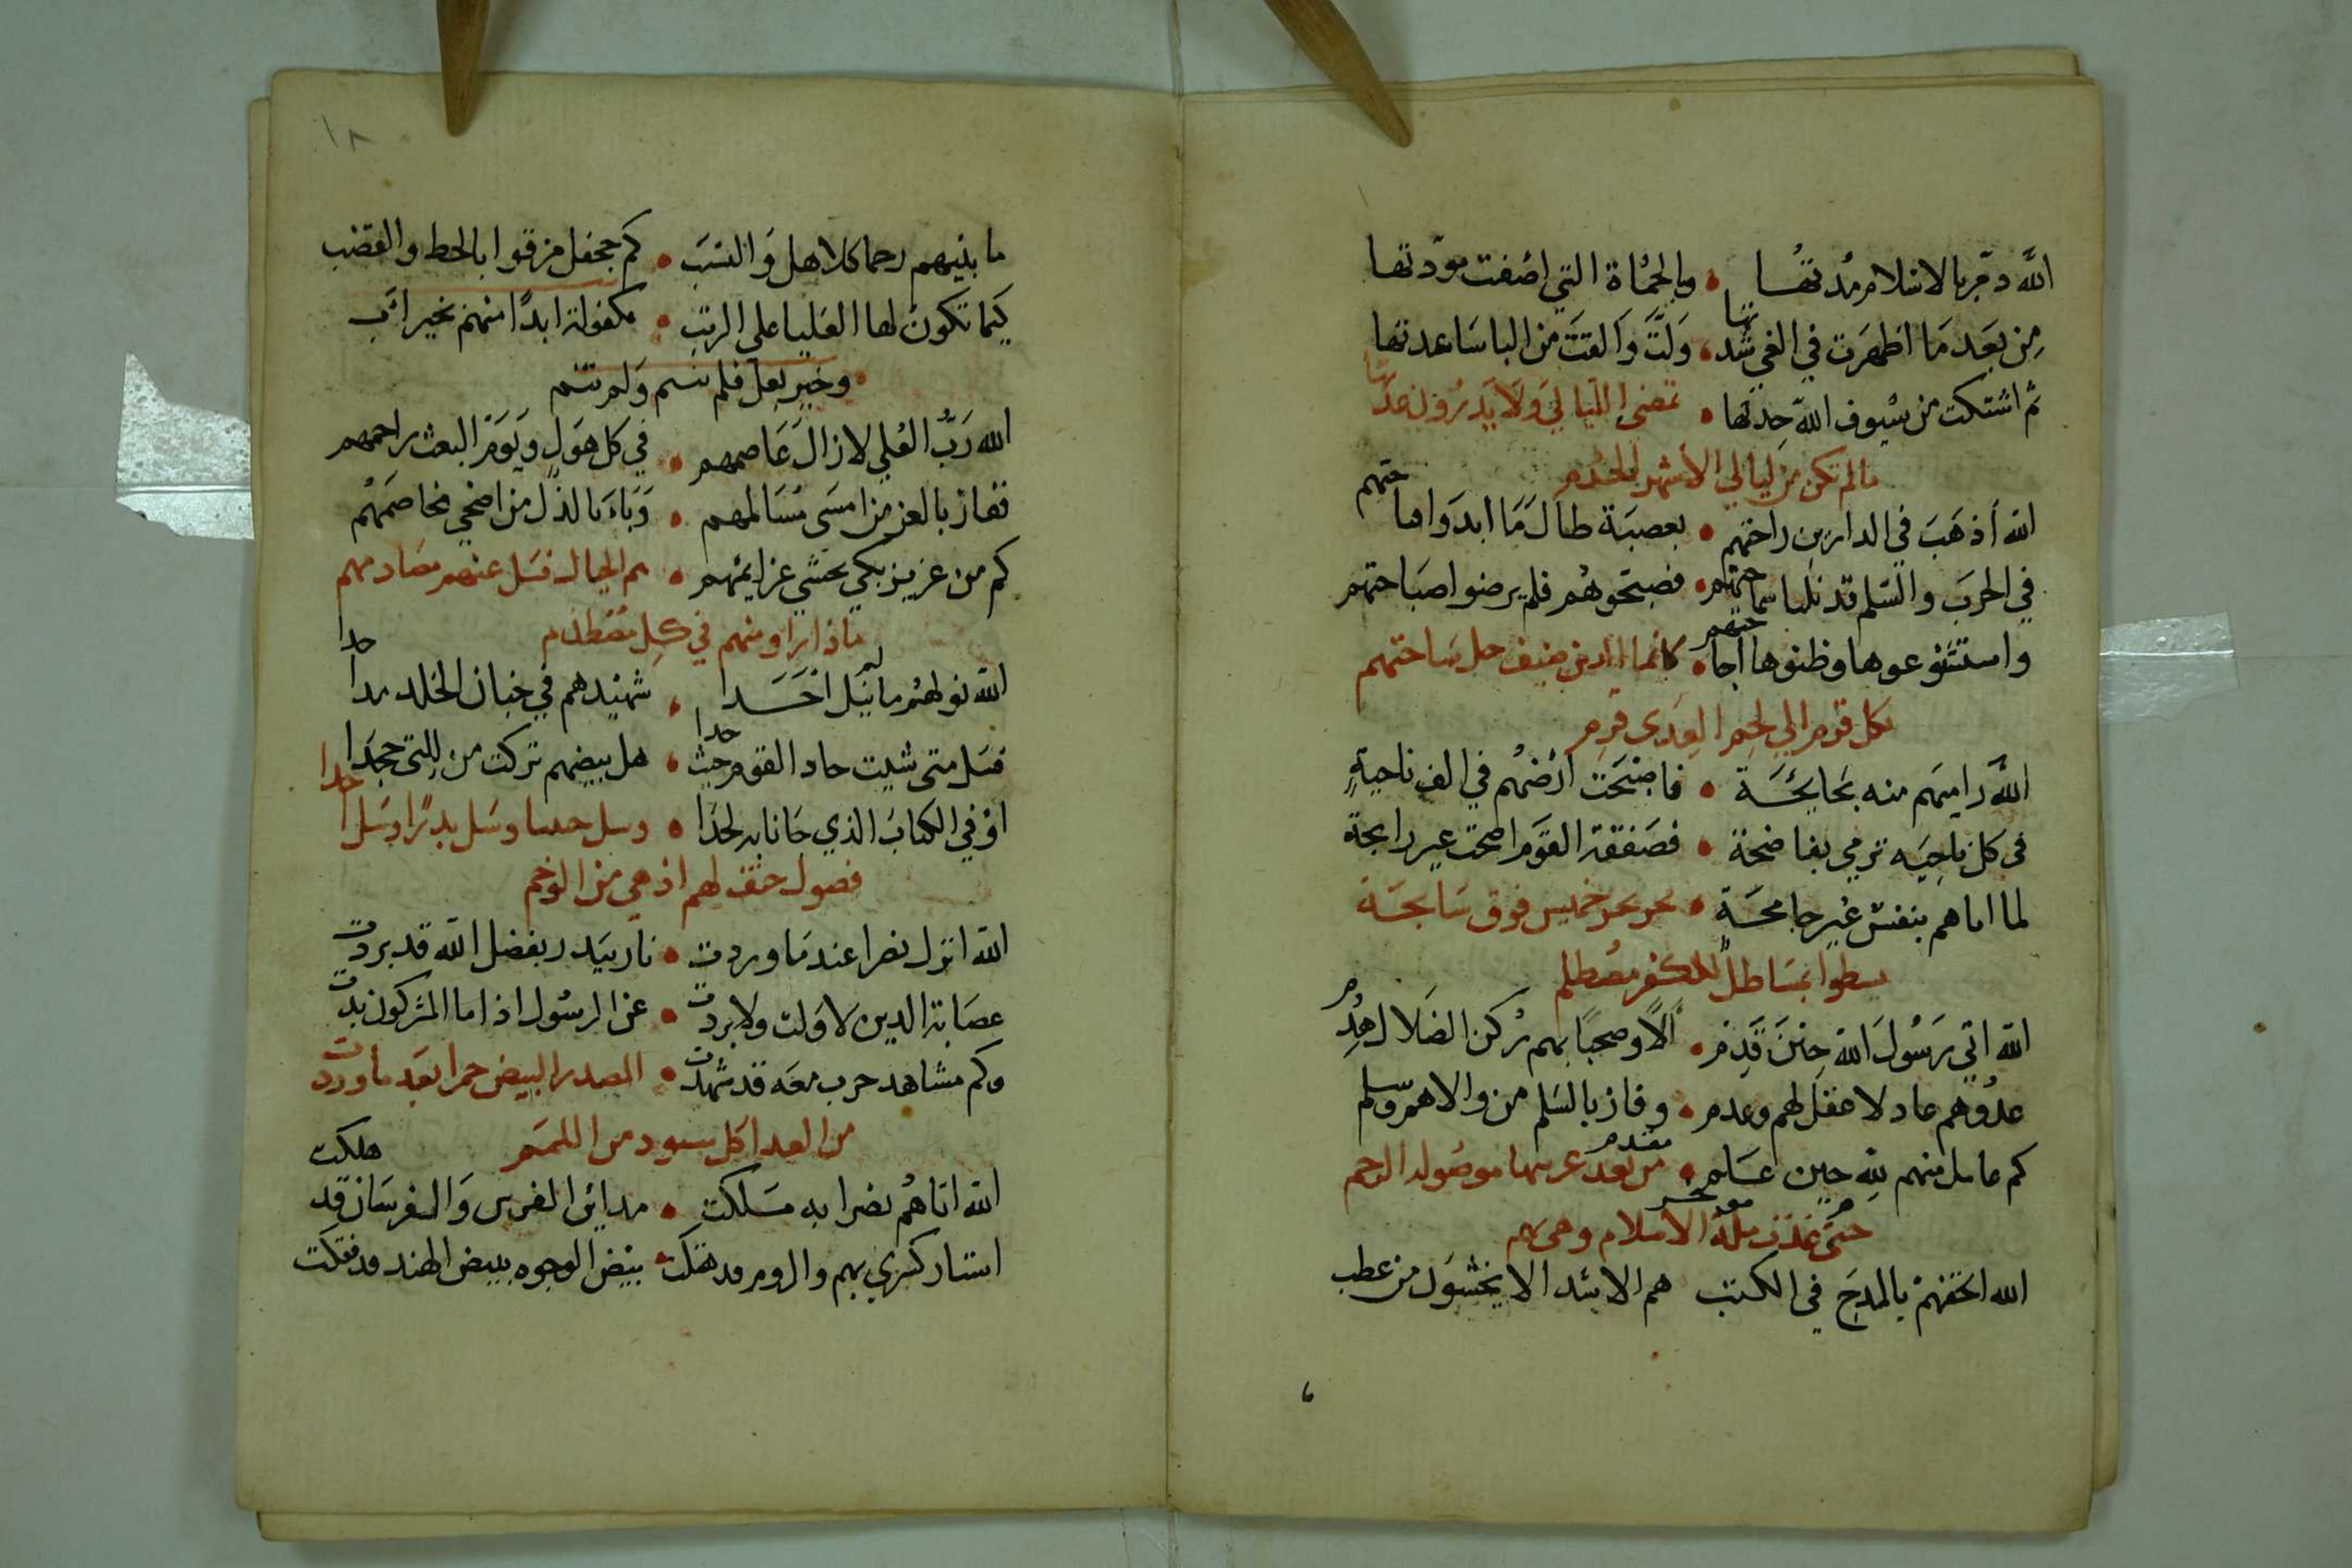 الله دمّر بالاسلام مدتها • وبالحماة التي اضفت مودتها
من بعد ما اظهرت في الغي شدتها • ولت والقت من الباساء عدتها
ثم اشتكت من سيوف الله حدتها • تمضي الليالي ولا يدرون عدتها
مالم تكن من ليالي الاشهر الحرم
الله أذهب في الدارين راحتهم • بعصبة طال ما ابدوا
في الحرب والسلم قد نلنا سماحتهم • فصبحوهم فلم يرضوا صباحتهم
وظنوها • كانما الدين ضيف حل ساحتهم
بكل قرم الي لحم العدى قرم
الله راميهم منه بجايحة • فاصبحت ارضهم في الف ناحية
في كل ناحيه ترمي بفاضحة • فصفقة القوم اضحت غير رابحة
لما اتاهم بنفس غير جامحة • يجر بحر خميس فوق سابحة
يسطوا بمستاصل للكفر مصطلم
الله اتي رسول الله حين قدم • آلا وصحبا بهم ركن الضلال هدم
عدوهم عاد لا عقل لهم وعدم • وفاز بالسلم من والاهم وسلم
كم عامل منهم لله حين • من بعد غربتها موصولة الرحم
حتى غدت ملة الاسلام وهي بهم
الله اتحفهم بالمدح في الكتب هم الاسد الا يخشون من عطب
١٨
ما بينهم رحما كالاهل والنسب • كم جحفل مزقوا بالخط والقضب
كيما تكون لها العليا على الرتب • مكفولة ابدا منهم بخير اب
• وخير بعل فلم تيتم ولم تئم
الله رب العلي لازال عاصمهم • في كل هول ويوم البعث راحمهم
ففاز بالعز من امسى مسالمهم • وباء بالذل من اضحي مخاصمهم
كم من عزيز بكي يخشي عزايمهم • هم الجبال فسل عنهم مصادمهم
ماذا راو منهم في كل مصطدم
الله نولهم مالم ينل احدا • شهيدهم في جنان الخلد
فسل متى شيت حاد القوم حيث حدا • هل بيضهم تركت من للتى جحدا
او في الكتاب الذي جانا به لحدا • وسل حنينا وسل بدرا وسل احدا
فصول حتف لهم ادهي من الوخم
الله انزل نصرا عندما وردت • نار ببدر بفضل الله قد بردت
عصابة الدين لا ولت ولا بردت • عن الرسول اذا ما المشركون بدت
وكم مشاهد حرب معه قد شهدت • المصدر البيض حمرا بعد ما وردت
من العدا كل مسود من اللمم
الله اتاهم نصرا به سلكت • مداين الفرس والفرسان قد هلكت
استار كسري بهم والروم قد هتكت • بيض الوجوه ببيض الهند قد فتكت